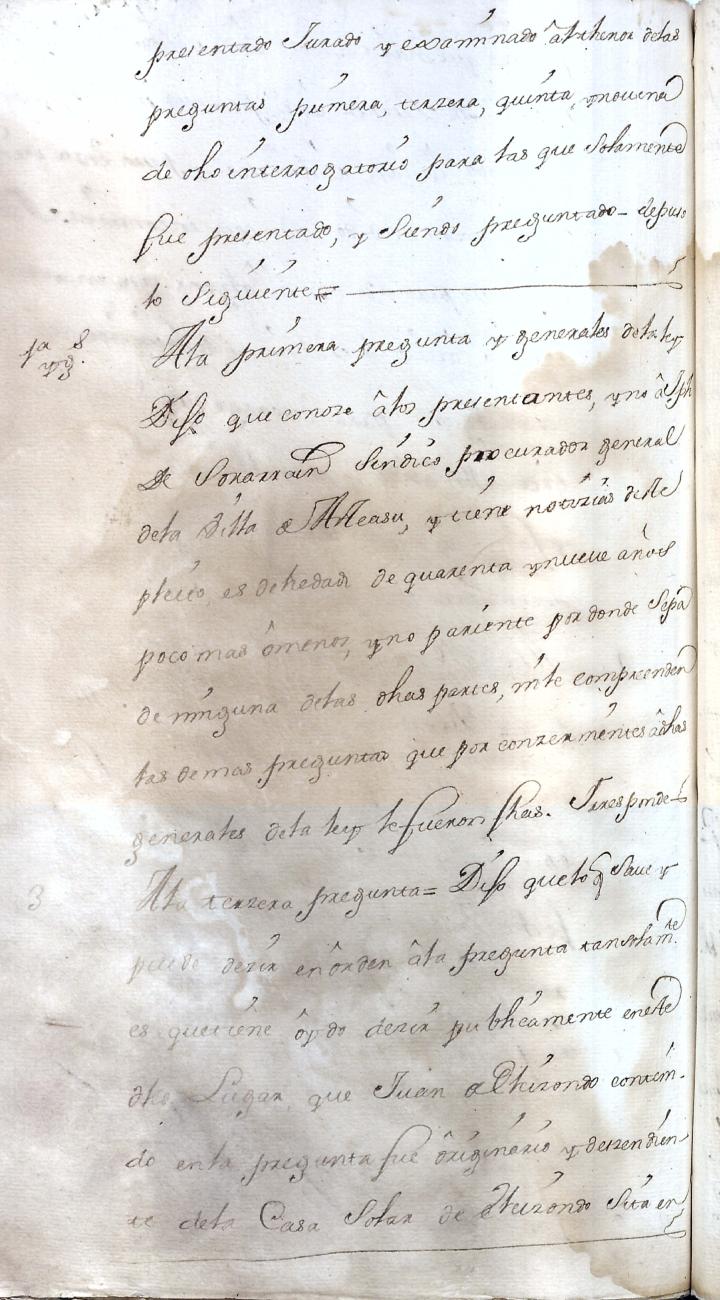 presentado Jurado y examinado âl thenor delas
preguntas primera, terzera, quinta, ynovena
de dho interrogatorio para las que Solamente
fue presentado, y Siendo preguntado - depuso
lo Siguiente =
1ª y g.s Ala primera pregunta y generales dela ley
Dijo que conoze âlos presentantes, yno â Jph
de Sorarrain Sindico procurador general
dela Villa de Arteasu, y tiene notizias deste
pleito, es dehedad de quarenta ynueve años
poco mas ômenos, yno pariente por donde Sepa
de ninguna delas dhas partes, nile comprenden
las demas preguntas que por conzernientes âdhas
generales dela ley le fueron fhas. Yresponde
3 Ala terzera pregunta = Dijo quelo q Save y
puedo dezir enôrden âla pregunta tansolamte
es quetiene ôydo dezir publicamente eneste
dho Lugar que Juan de Elizondo conteni-
do enla pregunta fue ôriginario y deszendien-
te dela Casa Solar de Elizondo Sita en